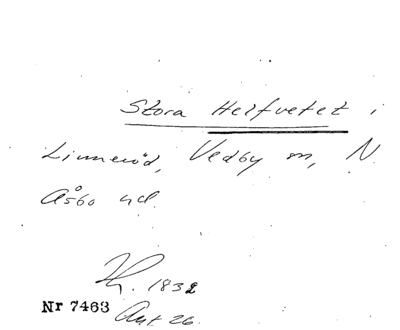 Stora Helfvetet i
Linneröd, Vedby sn, N.
Åsbo hd.
1832
Nr 7463 Akt 26.